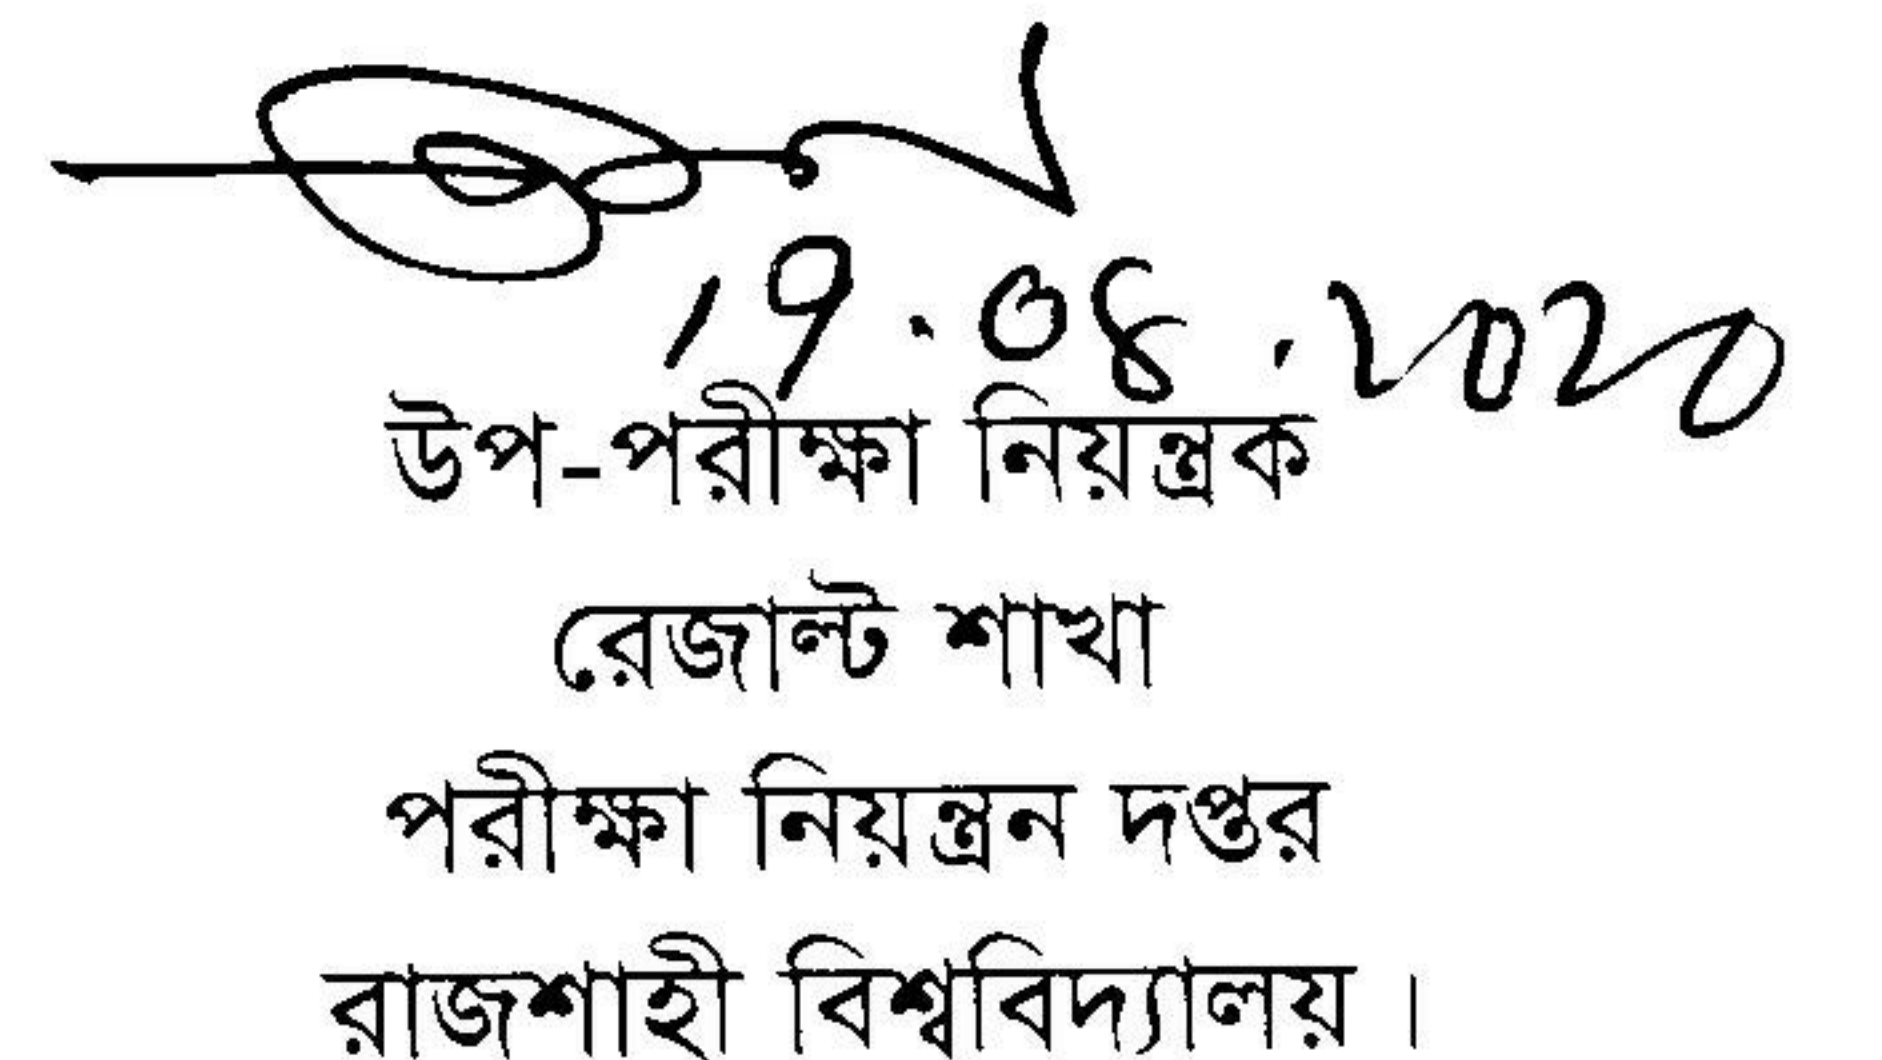 19.08.2020
উপ-পরীক্ষা নিয়ন্ত্রক
রেজাল্ট শাখা
পরীক্ষা নিয়ন্ত্রন দপ্তর
রাজশাহী বিশ্ববিদ্যালয় ।